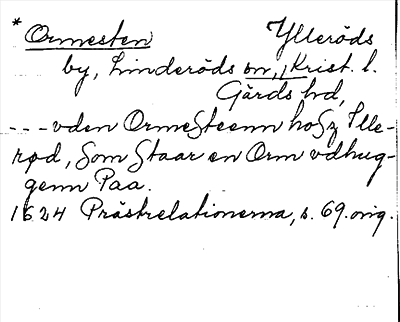 * Ormesten Ylleröds
by, Linderöds sn, Krist. l.
Gärds hd,
--- vden OrmeSteenn hoSz Ille-
rød, Som Staar en Orm vdhug-
genn Paa.
1624 Prästrelationerna, s. 69. orig.